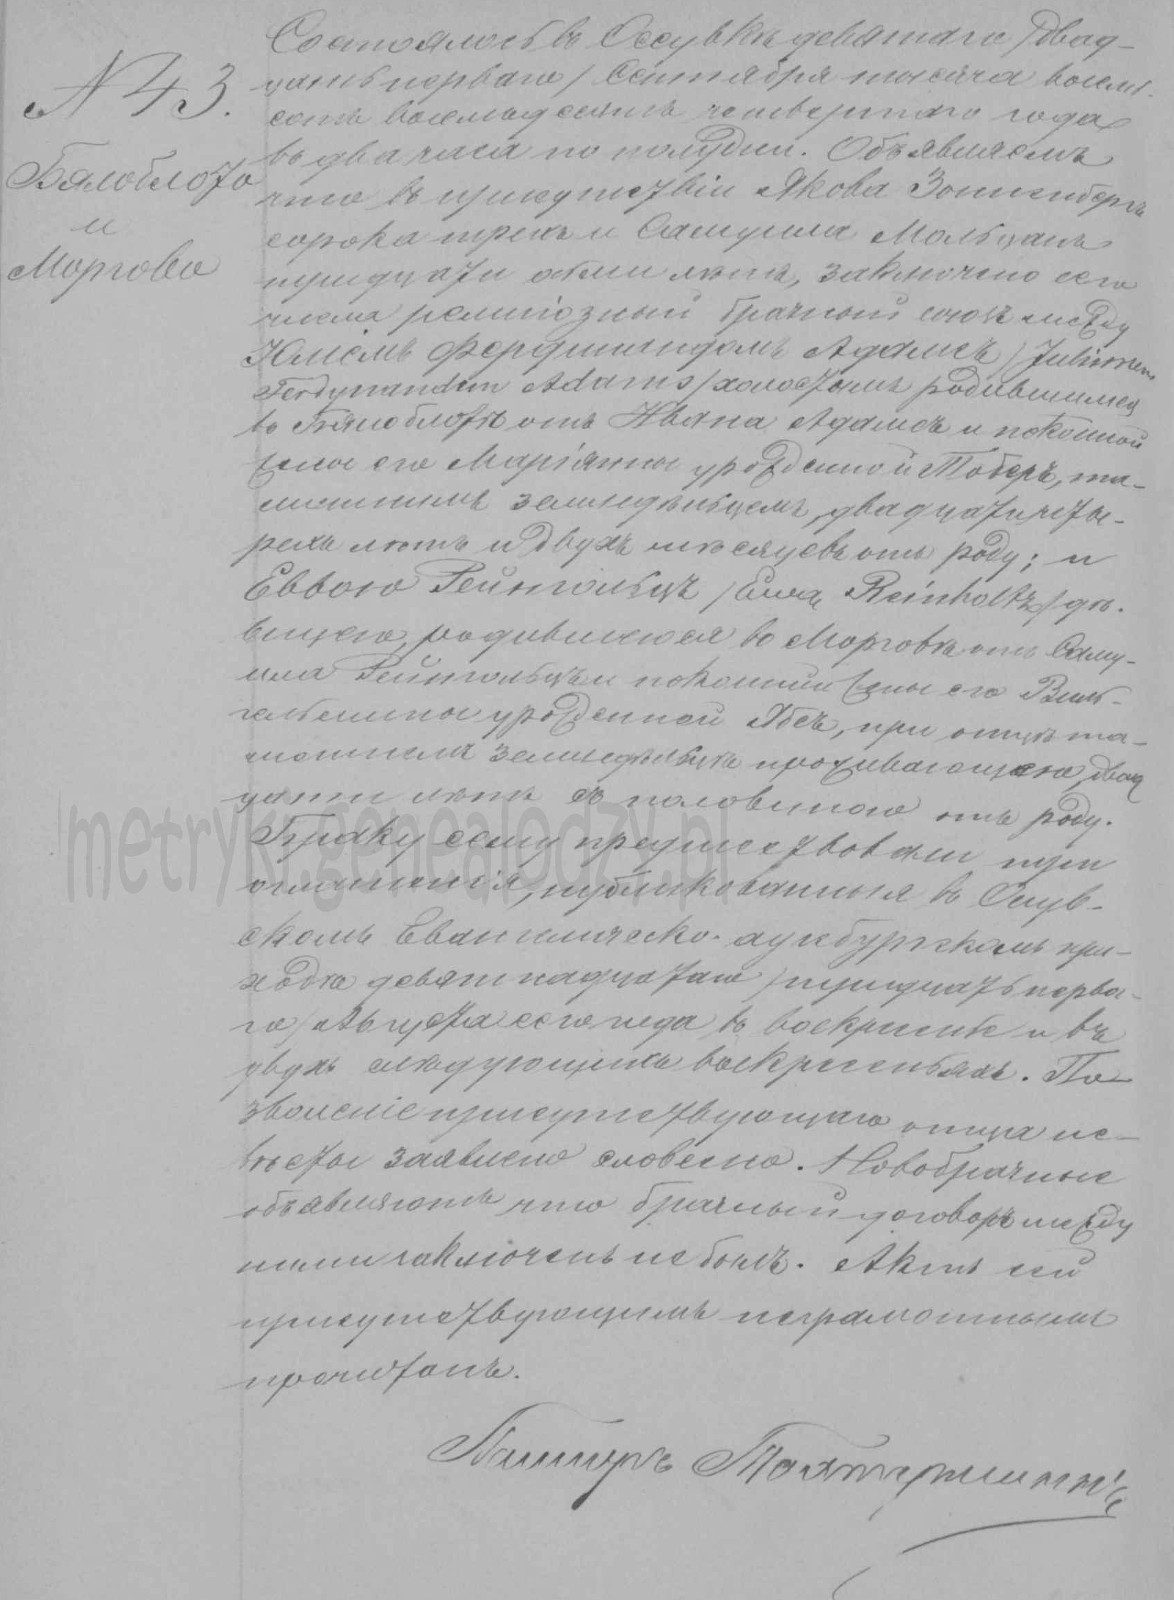 № 43.
Бялоблото
и
Моргово
Состоялось въ Оссувкѣ девятаго /двад-
цать перваго/ Сентября тысяча восемь-
сотъ восемьдесятъ четвертаго года
въ два часа по полудни. Объявляемъ
что въ присутствіи Якова Зонненбергъ
сорока трехъ и Самуила Мольцанъ
тридцати лѣтъ, заключено сего
числа религіозный брачный союзъ между
Юліемъ Фердинандомъ Адамсъ /Juliusem
Ferdynandem Adams/ холостымъ родившимся
въ Бялоблотѣ отъ Ивана Адамсъ и покойной
жены его Маріянны урожденной Тоберъ, та-
мошнимъ земледѣльцемъ, двадцати четы-
рехъ лѣтъ и двухъ мѣсяцевъ отъ роду; и
Еввою Рейнгольцъ /Ewą Reinholtz/ дѣ-
вицею, родившеюся въ Морговѣ отъ Саму-
ила Рейнгольцъ и покойной жены его Виль-
гельмины урожденной Абсъ, при отцѣ та-
мошнемъ земледѣльцѣ проживающею, двад
цати лѣтъ съ половиною отъ роду.
Браку сему предшествовали три
оглашенія, публикованныя въ Осув-
скомъ Евангелическо-аугсбургскомъ при-
ходѣ девятнадцатаго /тридцать перва-
го/ Августа сего года въ воскресеніе и въ
двухъ слѣдующихъ воскресеньяхъ. По-
зволеніе присутствующаго отца не-
вѣсты заявлено словесно. Новобрачные
объявляютъ что брачный договоръ между
ними заключенъ не былъ. Актъ сей
присутствующимъ неграмотнымъ
прочитанъ.
Пасторъ
metryki.genealodzy.pl